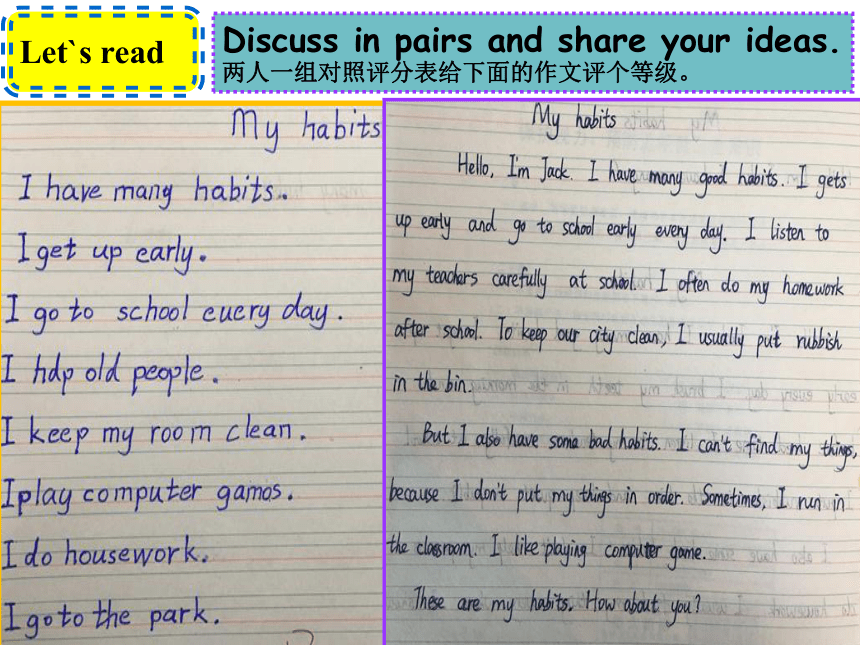 Let`s read
Discuss in pairs and share your ideas.
两人一组对照评分表给下面的作文评个等级。
My habits
I have many habits.
I get up early.
I go to school every day.
I help old people.
I keep my room clean.
I play computer games.
I do housework.
I go to the park.
My habits
Hello, I'm Jack. I have many good habits. I gets
up early and go to school early every day. I listen to
my teachers carefully at school. I often do my homework
after school. To keep our city clean, I usually put rubbish
in the bin.
But I also have some bad habits. I can't find my things,
because I don't put my things in order. Sometimes, I run in
the classroom. I like playing computer game.
These are my habits. How about you?